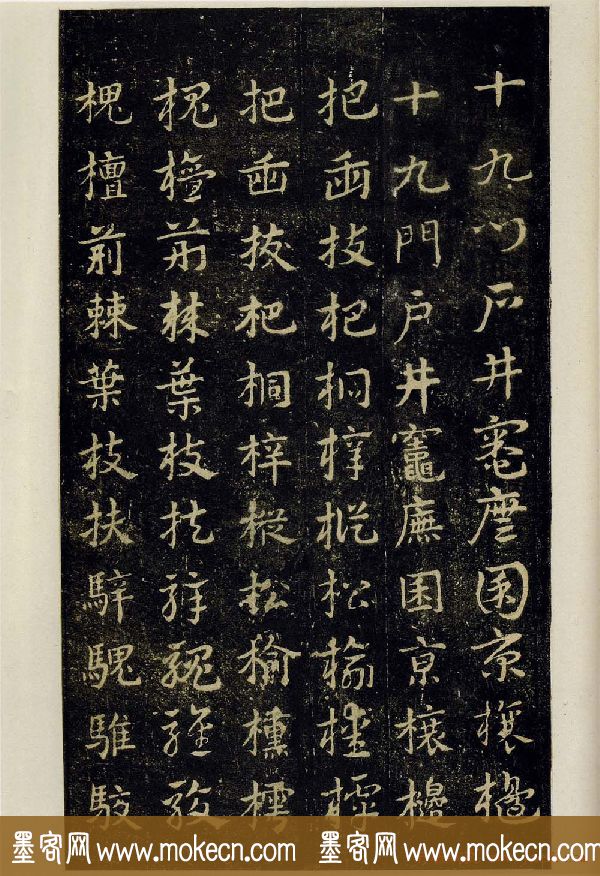 十九門户井竈廡囷京
十九門户井竈廡囷京
把臿拔杷桐梓樅松榆樗
把臿拔杷桐梓樅松榆櫄樗
槐檀荊棘葉枝扶騂騩騅駮
槐檀荊棘葉枝扶騂騩騅駮
墨客网 www.mokecn.com 墨客网 www.mokecn.com